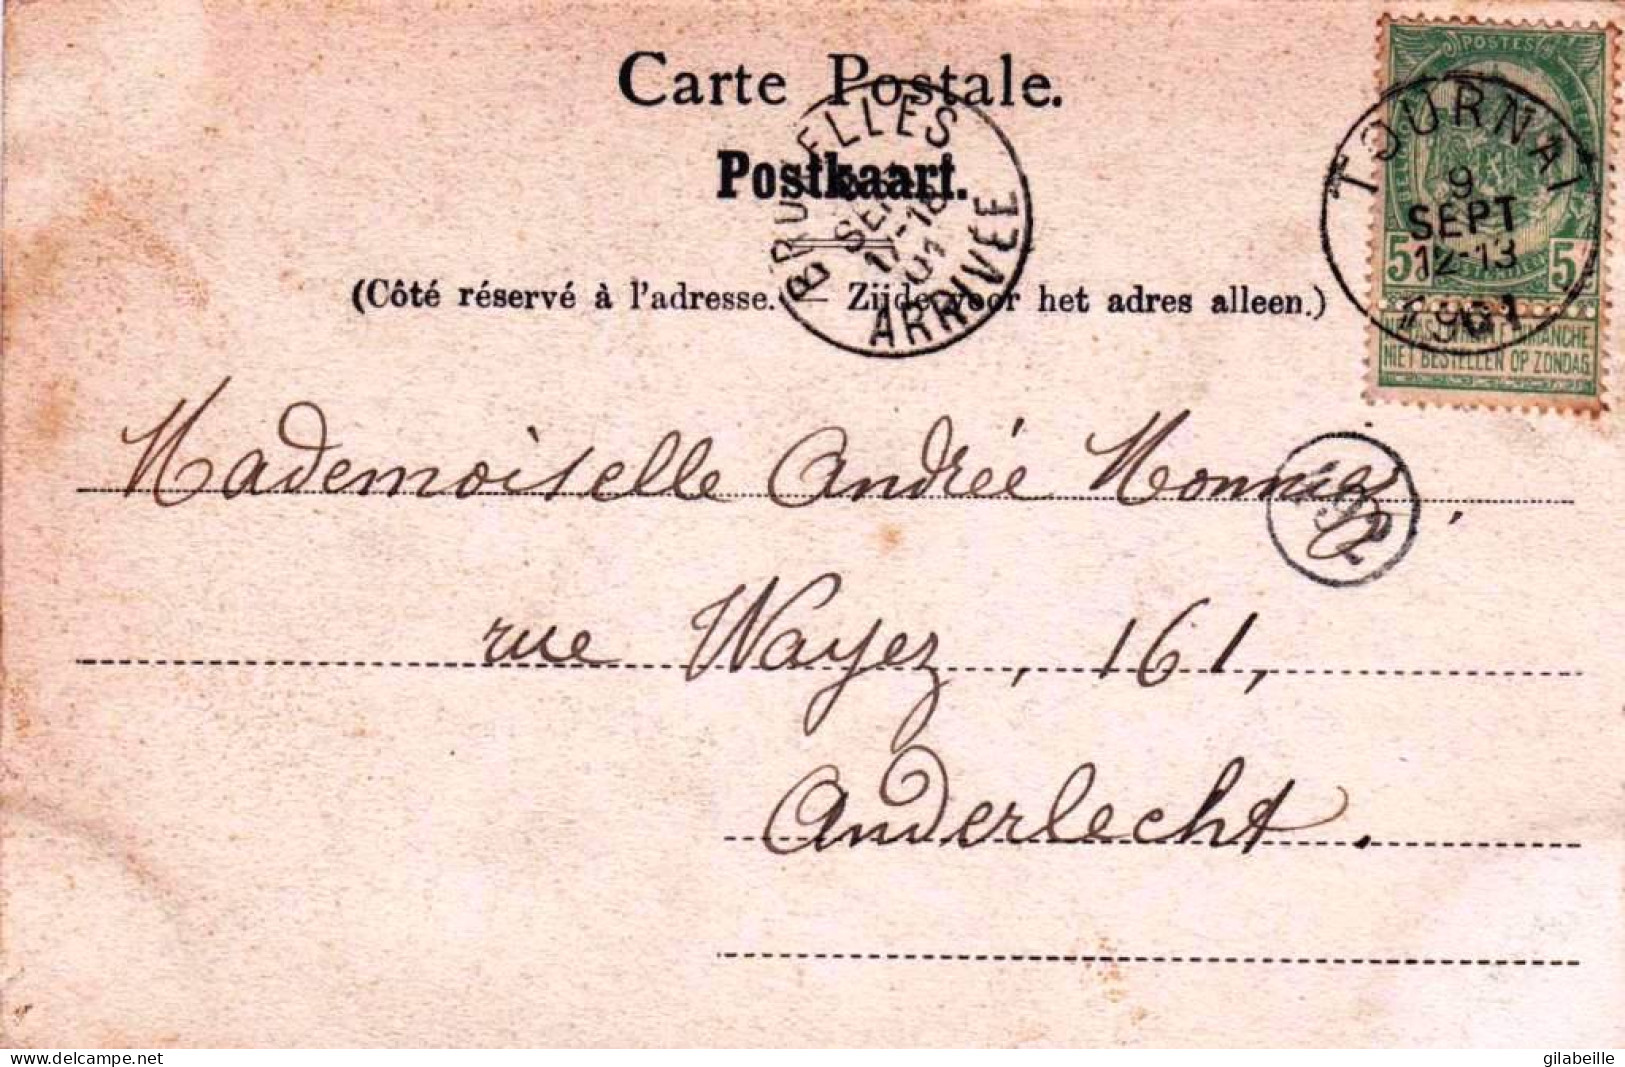 Carte Postale.
Postkaart.
(Côté réservé à l'adresse. — Zijde voor het adres alleen.)
BRUXELLES
SEPT
17-18
01
ARRIVÉE
POSTES
TOURNAI
9
SEPT
12-13
1901
5 5
NIET BESTELLEN OP ZONDAG
Mademoiselle Andrée
rue Wayez, 161,
Anderlecht.
delcampe.net
gilabeille